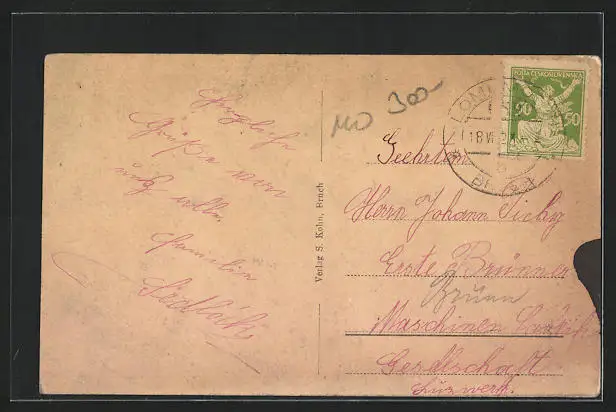 Herzliche
Grüße von
uns allen
Familie
Sedláček
Verlag S. Kohn, Bruch
MO 300-
POŠTA ČESKOSLOVENSKÁ
50 50
LOM
18 VI
Geehrten
Herrn Johann Sichy
Erste Brünner
Brünn
Maschinen
Gesellschaft